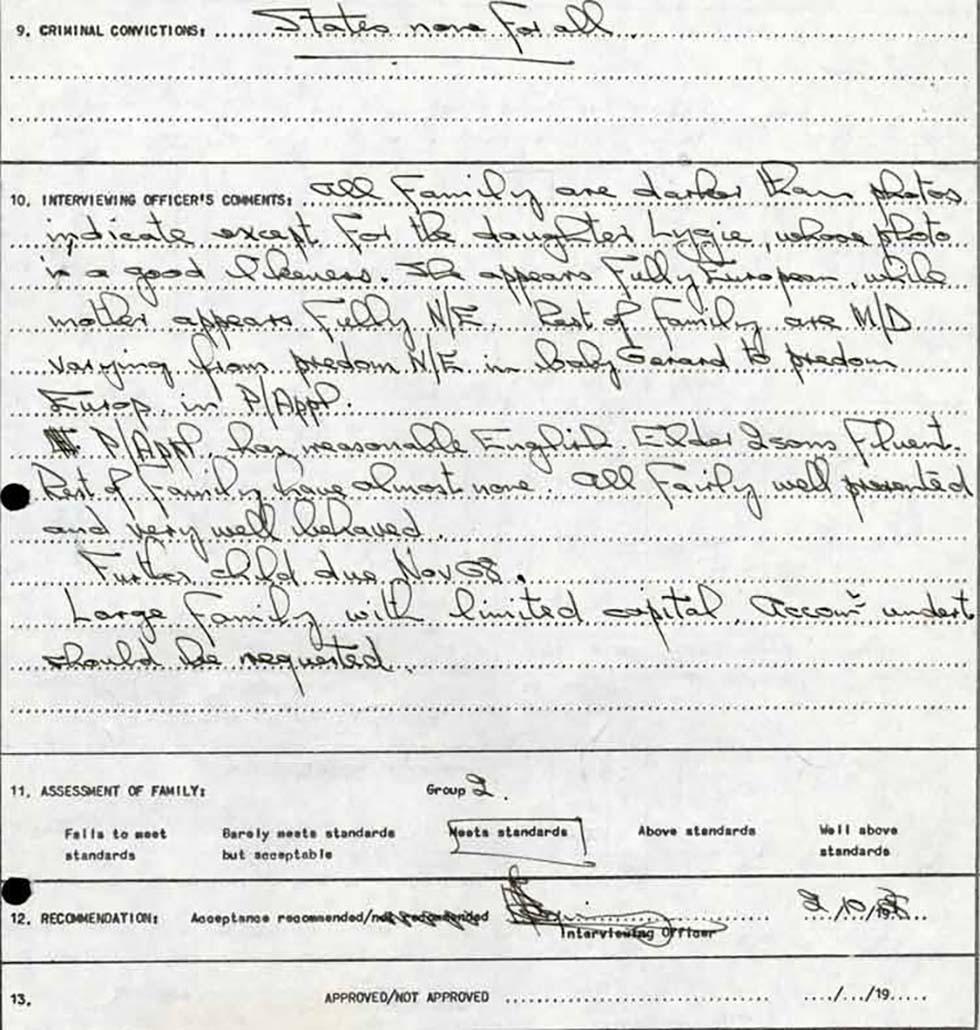 9. CRIMINAL CONVICTIONS: States none for all
10. INTERVIEWING OFFICER'S COMMENTS: All Family are darker than photos
indicate except for the daughter Lygie, whose photo
is a good likeness. She appears Fully European, while
mother appears Fully N/E. Rest of family are M/D
varying from predom N/E in baby Gerard to predom
Europ. in P/Appl.
P/Appl. has reasonable English. Elder 2 sons Fluent.
Rest of Family have almost none. All Fairly well presented
and very well behaved.
Further child due Nov 68.
Large Family with limited capital. Accom undert
should be requested.
11. ASSESSMENT OF FAMILY: Group 2.
Fails to meet standards Barely meets standards but acceptable Meets standards Above standards Well above standards
12. RECOMMENDATION: Acceptance recommended/not recommended
Interviewing Officer
13. APPROVED/NOT APPROVED ..../.../19.....